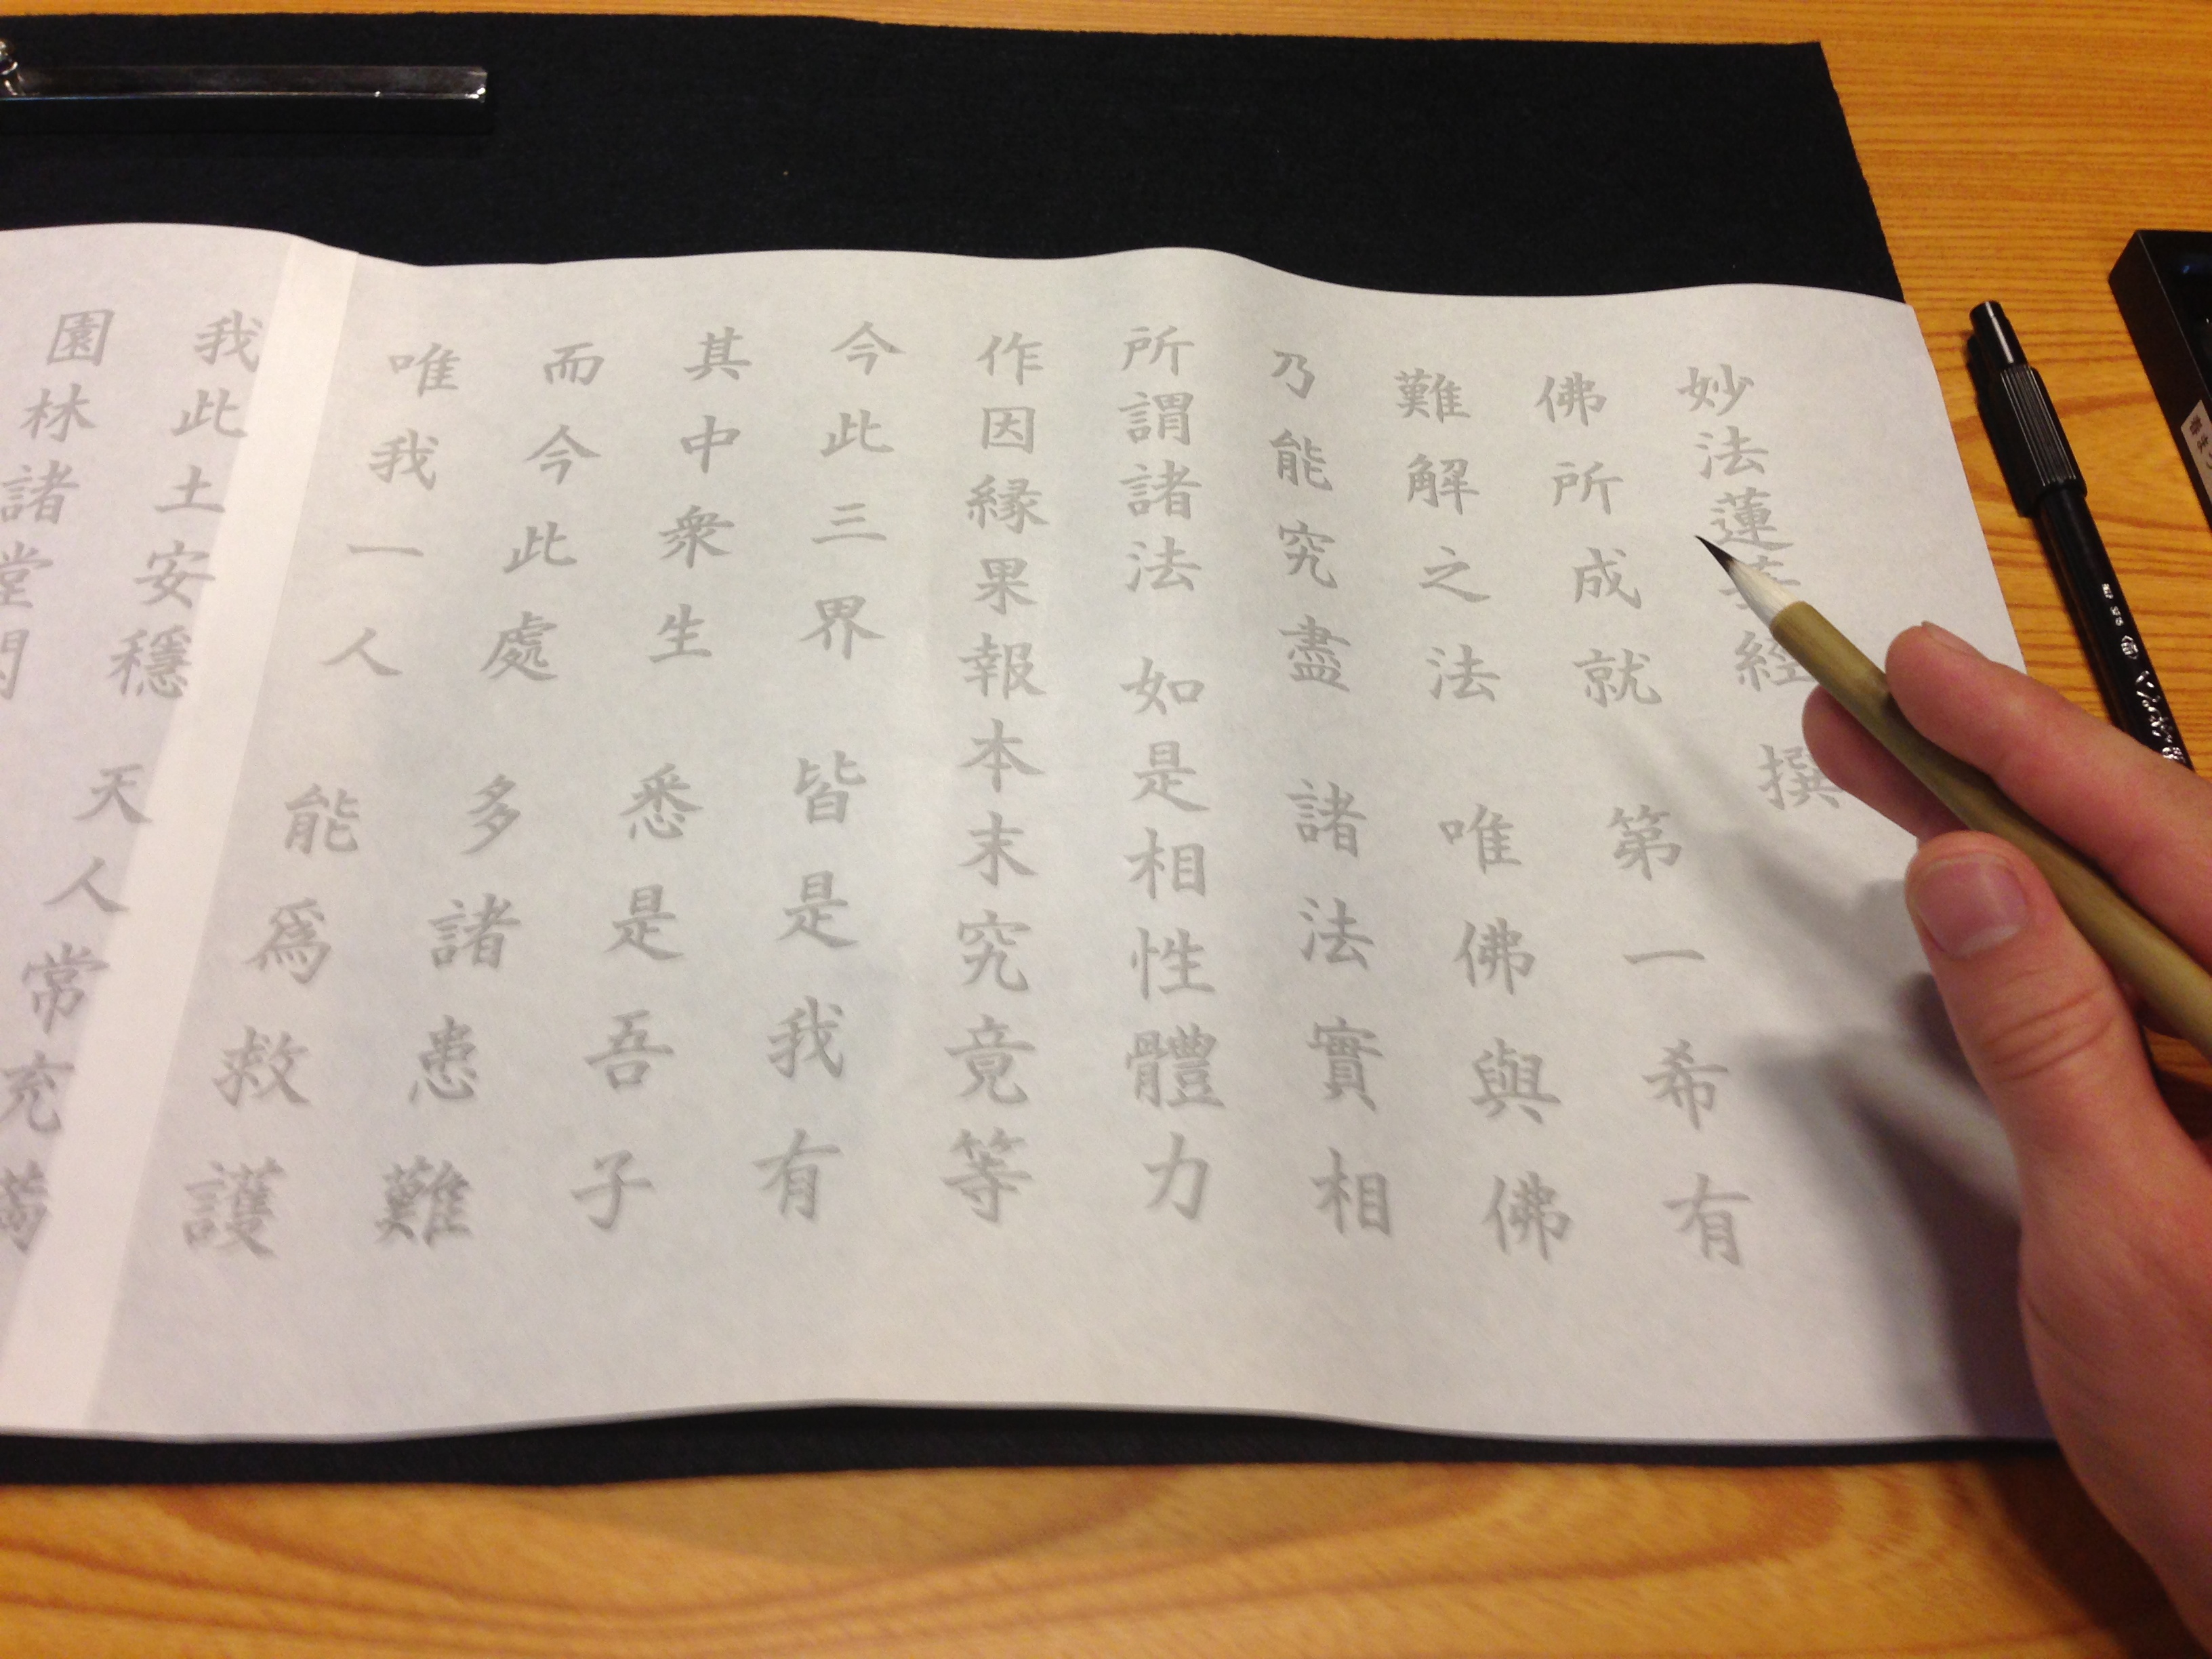 妙法蓮華經 撰
佛所成就 第一希有
難解之法 唯佛與佛
乃能究盡 諸法實相
所謂諸法 如是相性體力
作因緣果報本末究竟等
今此三界 皆是我有
其中衆生 悉是吾子
而今此處 多諸患難
唯我一人 能爲救護
我此土安穩 天人常充滿
園林諸堂閣